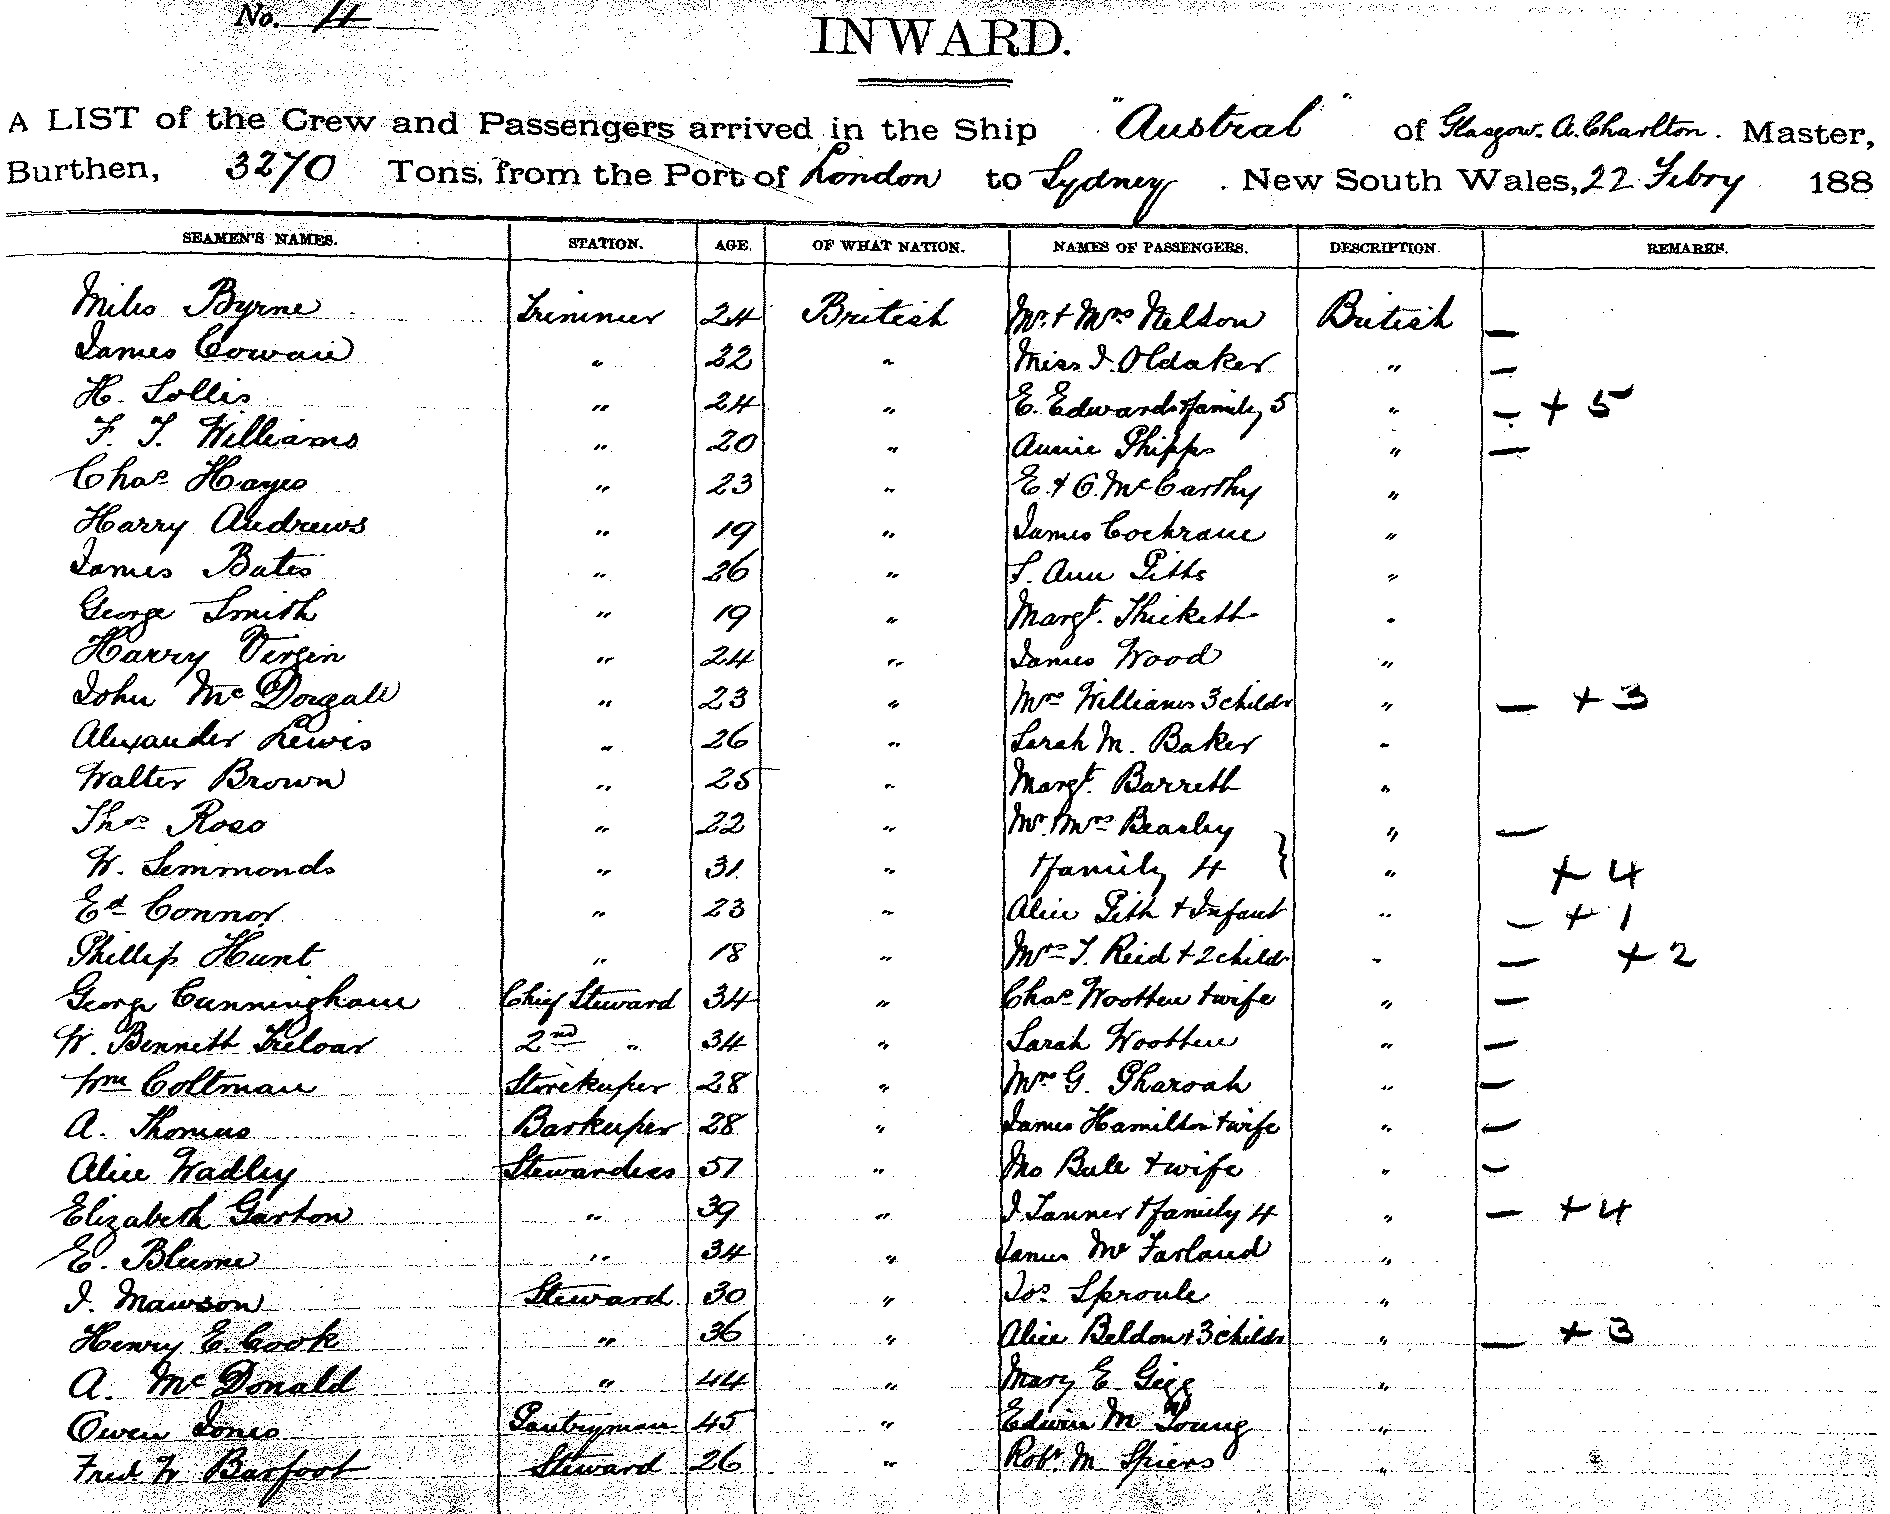 No. 4
INWARD.
A LIST of the Crew and Passengers arrived in the Ship "Austral" of Glasgow. A. Charlton. Master,
Burthen, 3270 Tons, from the Port of London to Sydney. New South Wales, 22 Febry 188
SEAMEN'S NAMES. STATION. AGE. OF WHAT NATION. NAMES OF PASSENGERS. DESCRIPTION. REMARKS.
Miles Byrne Trimmer 24 British Mr. + Mrs Nelson British —
James Cowan " 22 " Miss J. Oldaker " —
H. Sollis " 24 " E. Edwards + family 5 " — + 5
F. J. Williams " 20 " Annie Phipps " —
Chas Hayes " 23 " E. + G. McCarthy "
Harry Andrews " 19 " James Cochrane "
James Bates " 26 " S. Ann Pitts "
George Smith " 19 " Margt. Thickett "
Harry Virgin " 24 " James Wood "
John McDougall " 23 " Mrs Williams 3 childr " — + 3
Alexander Lewis " 26 " Sarah M. Baker "
Walter Brown " 25 " Margt. Barrett "
Thos Ross " 22 " Mr. Mrs Bearley " —
W. Simmonds " 31 " + family 4 } " + 4
Ed Connor " 23 " Alice Pith + Infant " — + 1
Phillip Hunt " 18 " Mrs J. Reid + 2 childr " — + 2
George Cunningham Chief Steward 34 " Chas Wootten + wife " —
W. Bennett Treloar 2nd " 34 " Sarah Wootten " —
Wm Coltman Storekeeper 28 " Mrs G. Pharoah " —
A. Thomas Barkeeper 28 " James Hamilton + wife " —
Alice Wadley Stewardess 51 " Bale + wife " —
Elizabeth Garton " 39 " J Tanner + family 4 " — + 4
E. Blume " 34 " James McFarland "
J. Mawson Steward 30 " Jos Sproule "
Henry E. Cook " 36 " Alice Beldon + 3 childr " — + 3
A. McDonald " 44 " Mary E Gigg "
Owen Jones Pantryman 45 " Edwin M Young "
Fred W Barfoot Steward 26 " Robt. M Spiers "